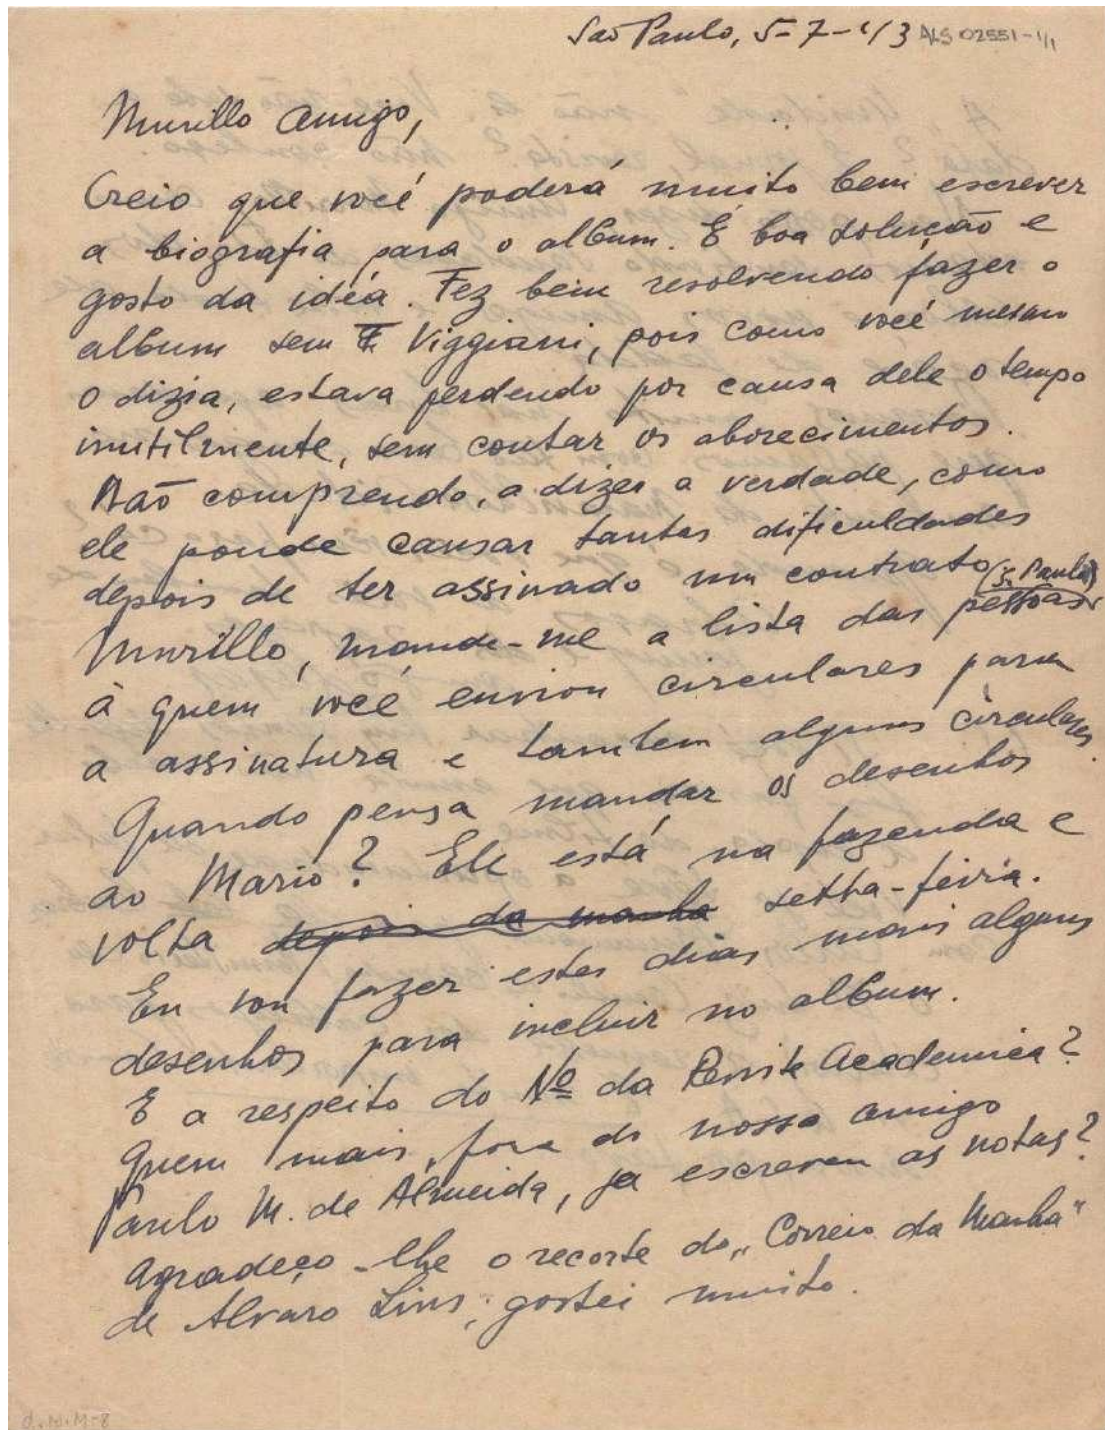 São Paulo, 5-7-43 ALS 02551-1/1
Murillo amigo,
Creio que você poderá muito bem escrever
a biografia para o album. É boa solução e
gosto da idéa. Fez bem resolvendo fazer o
album sem Viggiani, pois como você mesmo
o dizia, estava perdendo por causa dele o tempo
inutilmente, sem contar os aborecimentos.
Não comprendo, a dizer a verdade, como
ele poude causar tantas dificuldades
depois de ter assinado um contrato
(S. Paulo)
Murillo, mande-me a lista das pessoas
à quem você enviou circulares para
a assinatura e tambem alguns circulares.
Quando pensa mandar os desenhos
ao Mario? Ele está na fazenda e
volta depois da manha setha-feira.
Eu vou fazer estes dias mais alguns
desenhos para incluir no album.
E a respeito do Nº da Revista Academica?
Quem mais, fora do nosso amigo
Paulo M. de Almeida, ja escreveu as notas?
Agradeço-lhe o recorte do „Correio da Manha"
de Alvaro Lins, gostei muito.